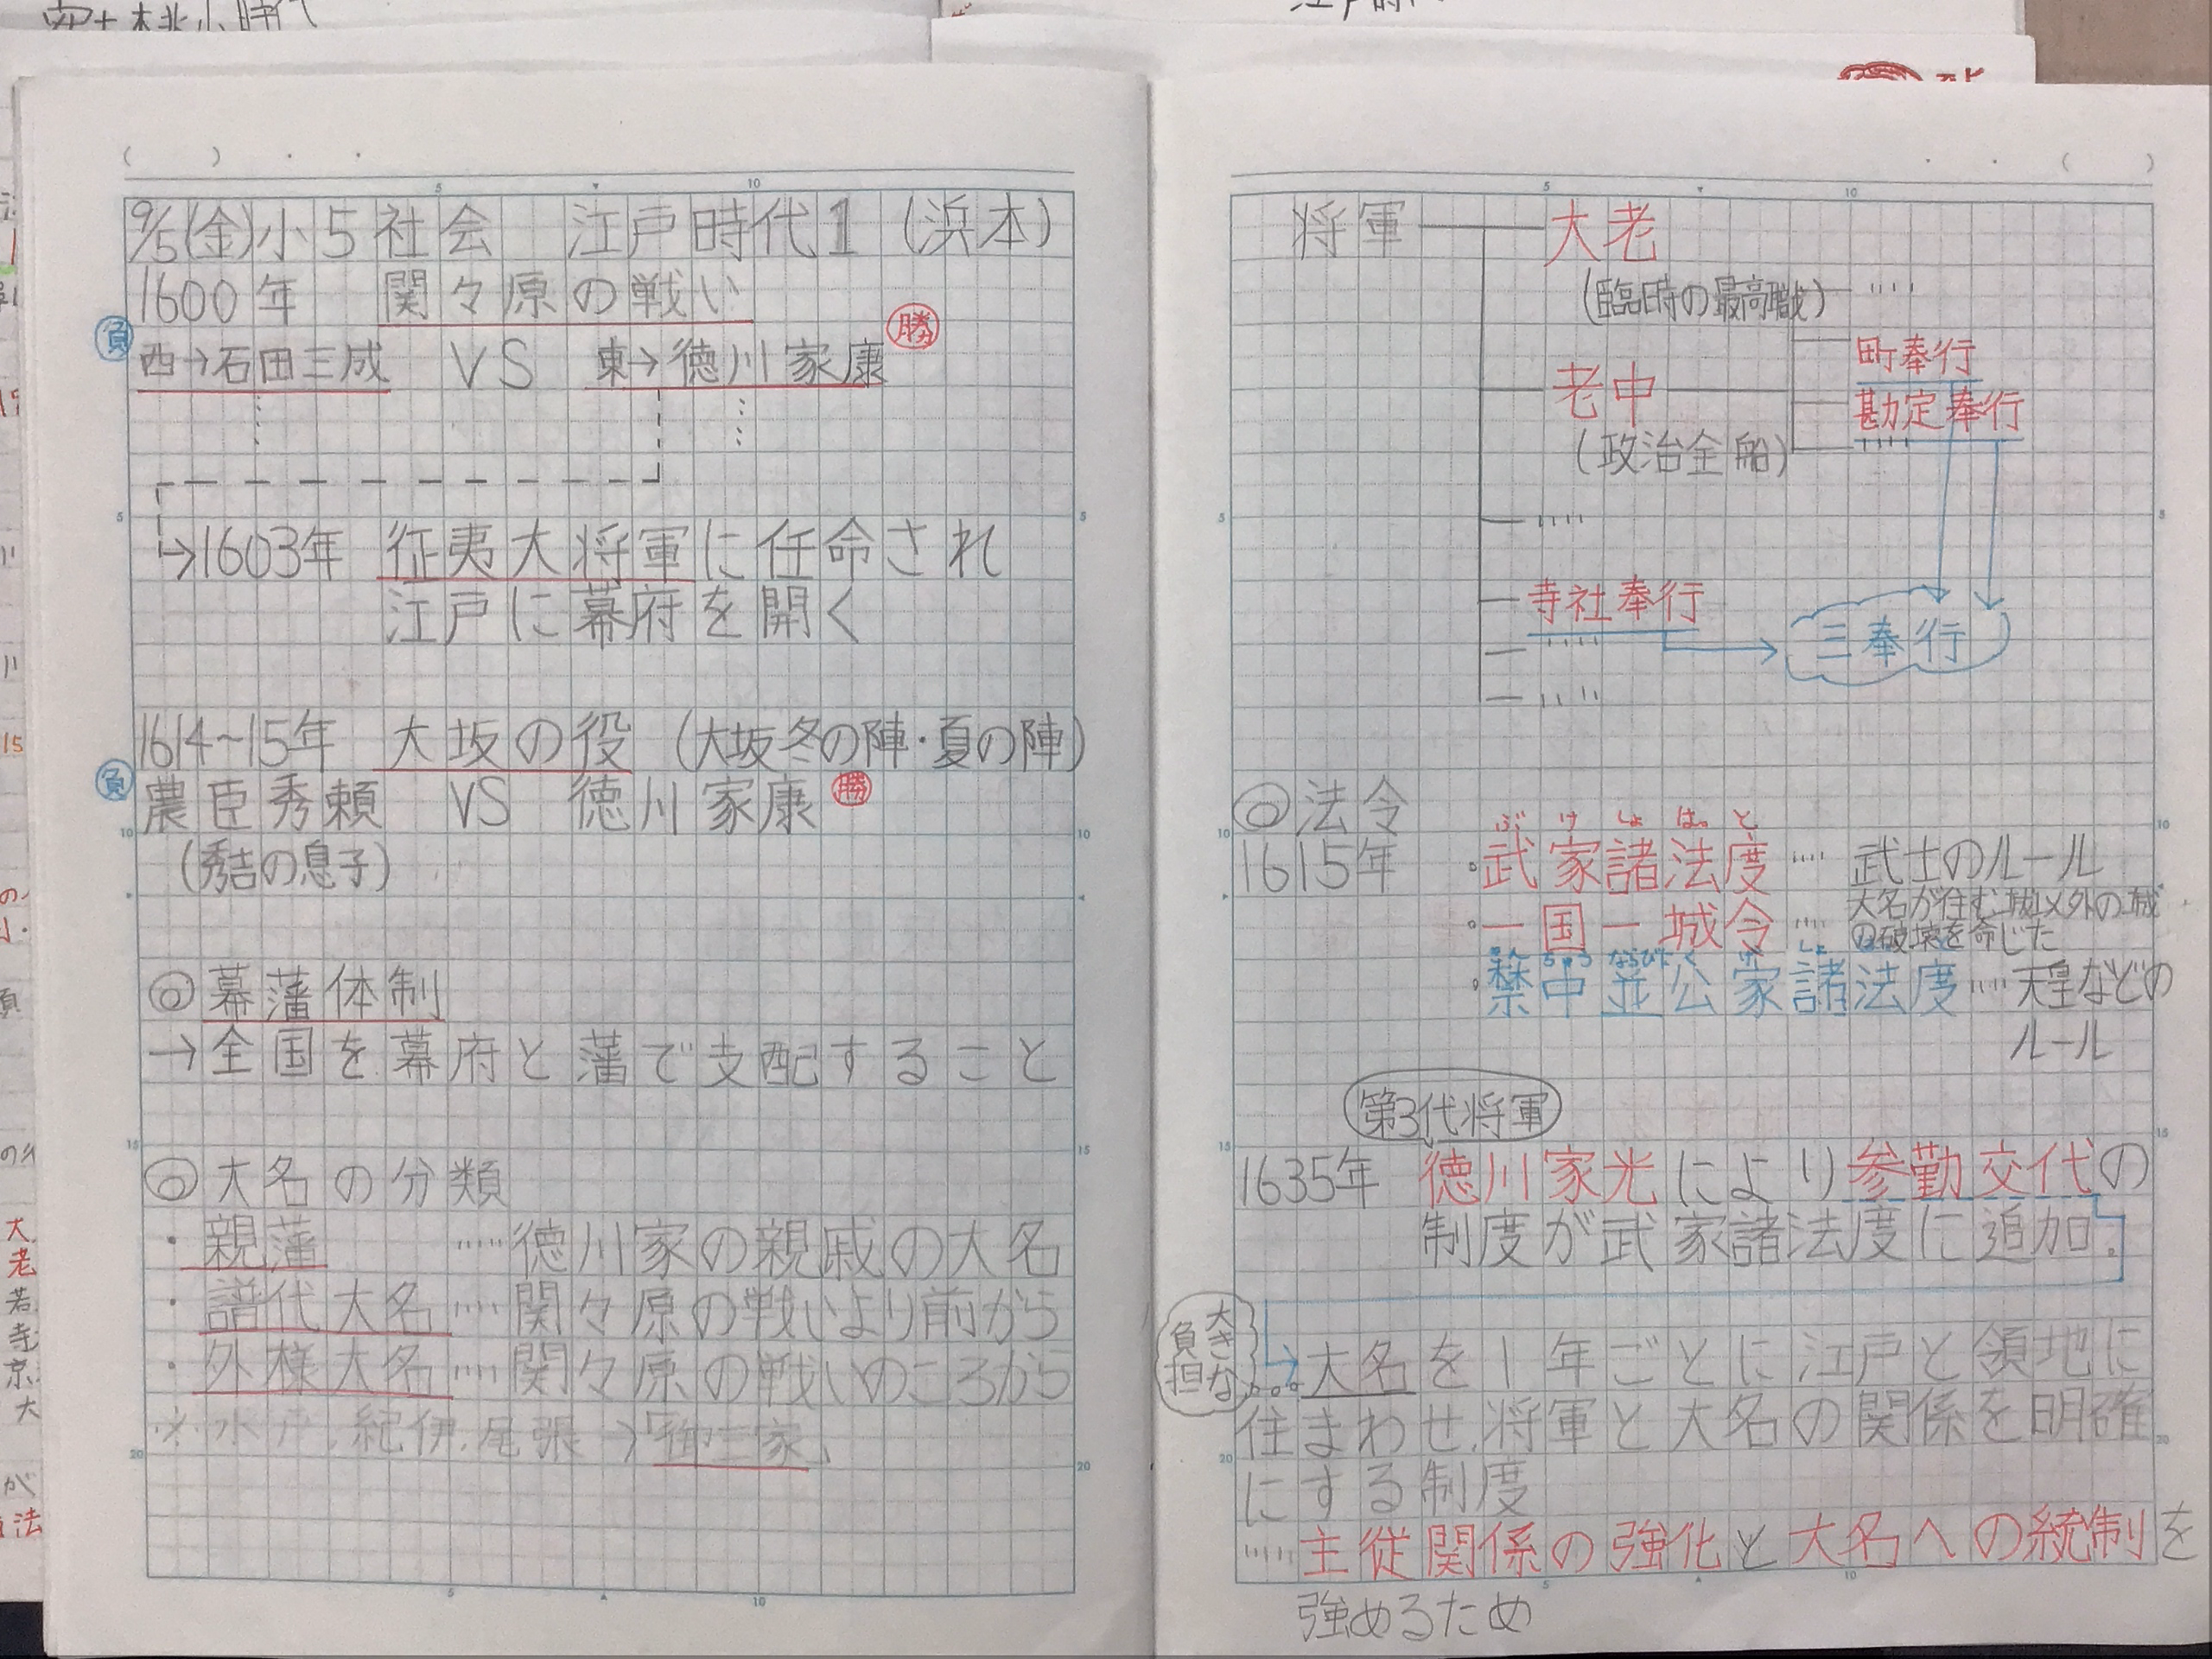 9/5(金)小5社会 江戸時代1 (浜本)
1600年 関々原の戦い
負 勝
西→石田三成 VS 東→徳川家康
→1603年 征夷大将軍に任命され
江戸に幕府を開く
1614~15年 大坂の役 (大坂冬の陣・夏の陣)
負 農臣秀頼 VS 徳川家康 勝
(秀吉の息子)
◎幕藩体制
→全国を幕府と藩で支配すること
◎大名の分類
・親藩 ……徳川家の親戚の大名
・譜代大名……関々原の戦いより前から
・外様大名……関々原の戦いのころから
※水戸、紀伊、尾張→「御三家」
将軍 大老
(臨時の最高職)
町奉行
老中 勘定奉行
(政治全船)
寺社奉行
三奉行
◎法令
ぶ け しょ はっ と
1615年 ・武家諸法度……武士のルール
・一国一城令……大名が住む城以外の城
の破壊を命じた
きん ちゅう ならびに く げ しょ
・禁中並公家諸法度……天皇などの
ルール
第3代将軍
1635年 徳川家光により参勤交代の
制度が武家諸法度に追加。
大きな
負担
大名を1年ごとに江戸と領地に
住まわせ、将軍と大名の関係を明確
にする制度
……主従関係の強化と大名への統制を
強めるため